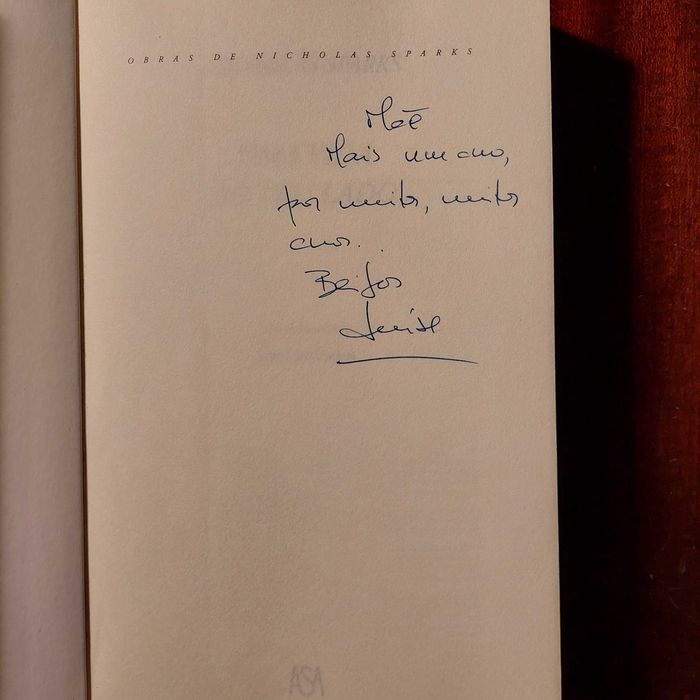 OBRAS DE NICHOLAS SPARKS
Mãe
Mais um ano,
por muitos, muitos
anos..
Beijos
Denise